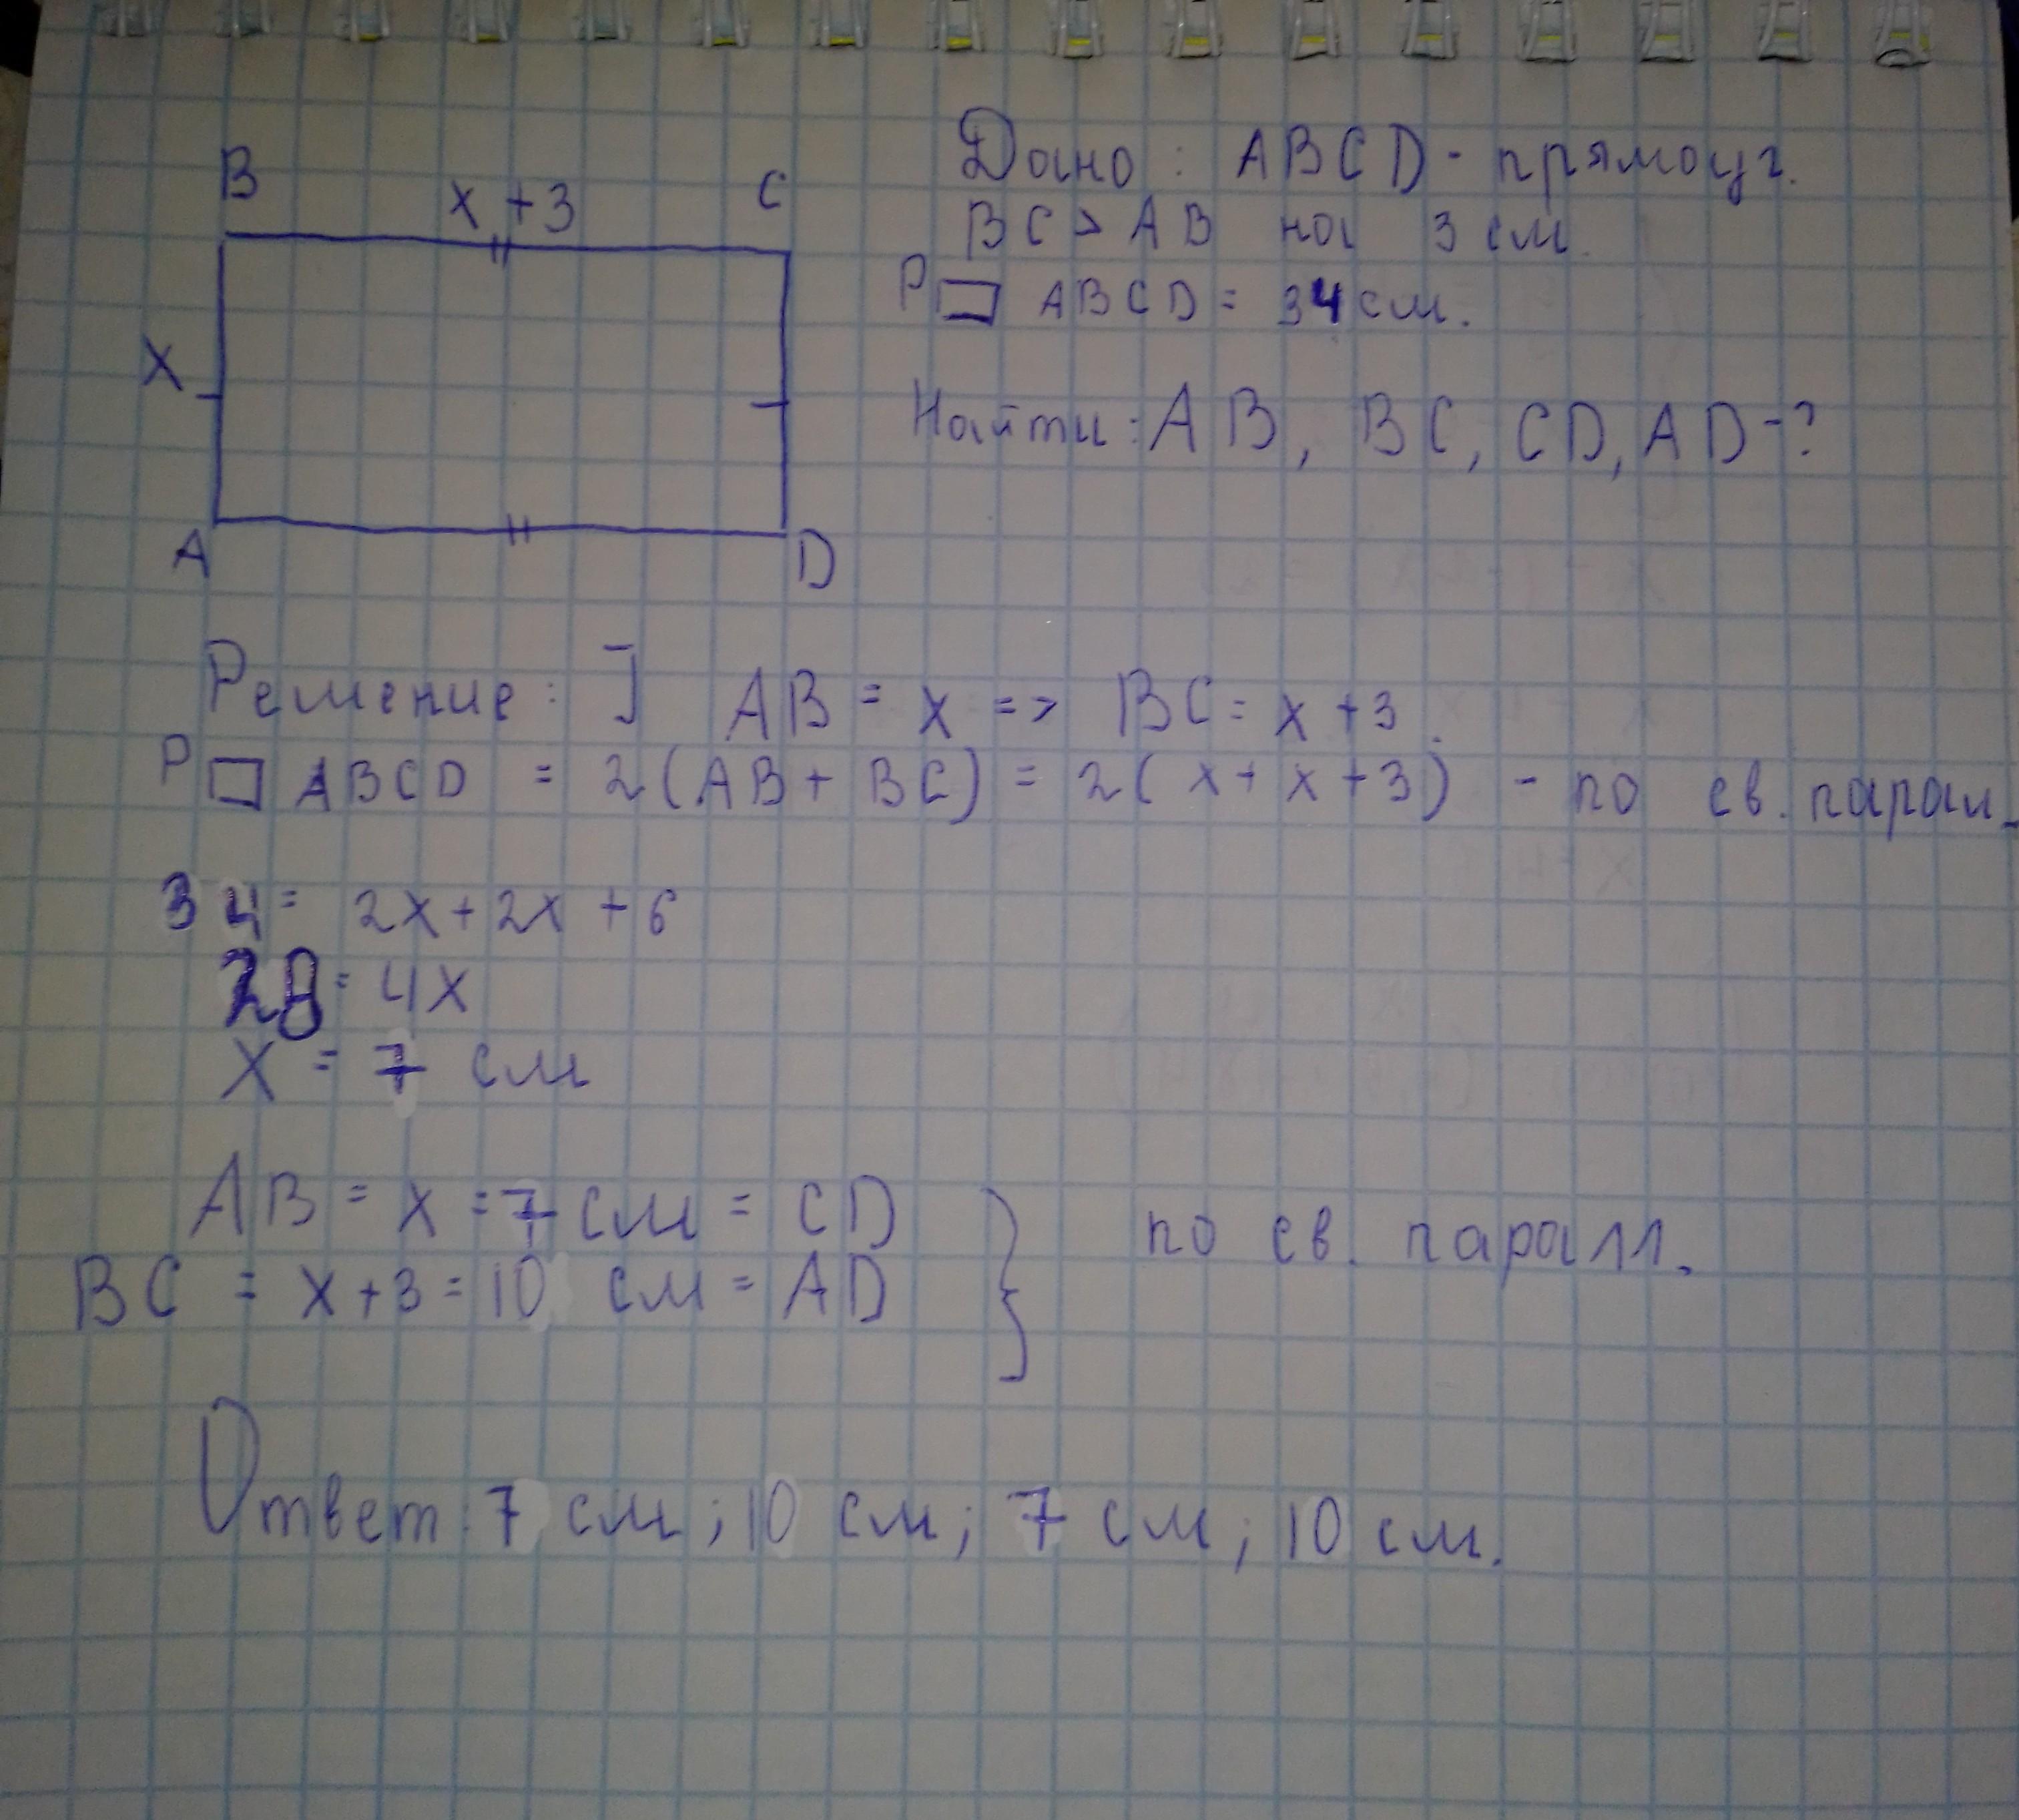 B x + 3 C
X
A D
Дано: ABCD - прямоуг.
BC > AB на 3 см.
P□ ABCD = 34 см.
Найти: AB, BC, CD, AD - ?
Решение: ] AB = x => BC = x + 3.
P□ ABCD = 2(AB + BC) = 2(x + x + 3) - по св. парал.
34 = 2x + 2x + 6
28 = 4x
X = 7 см
AB = x = 7 см = CD
BC = x + 3 = 10 см = AD } по св. паралл.
Ответ: 7 см; 10 см; 7 см; 10 см.